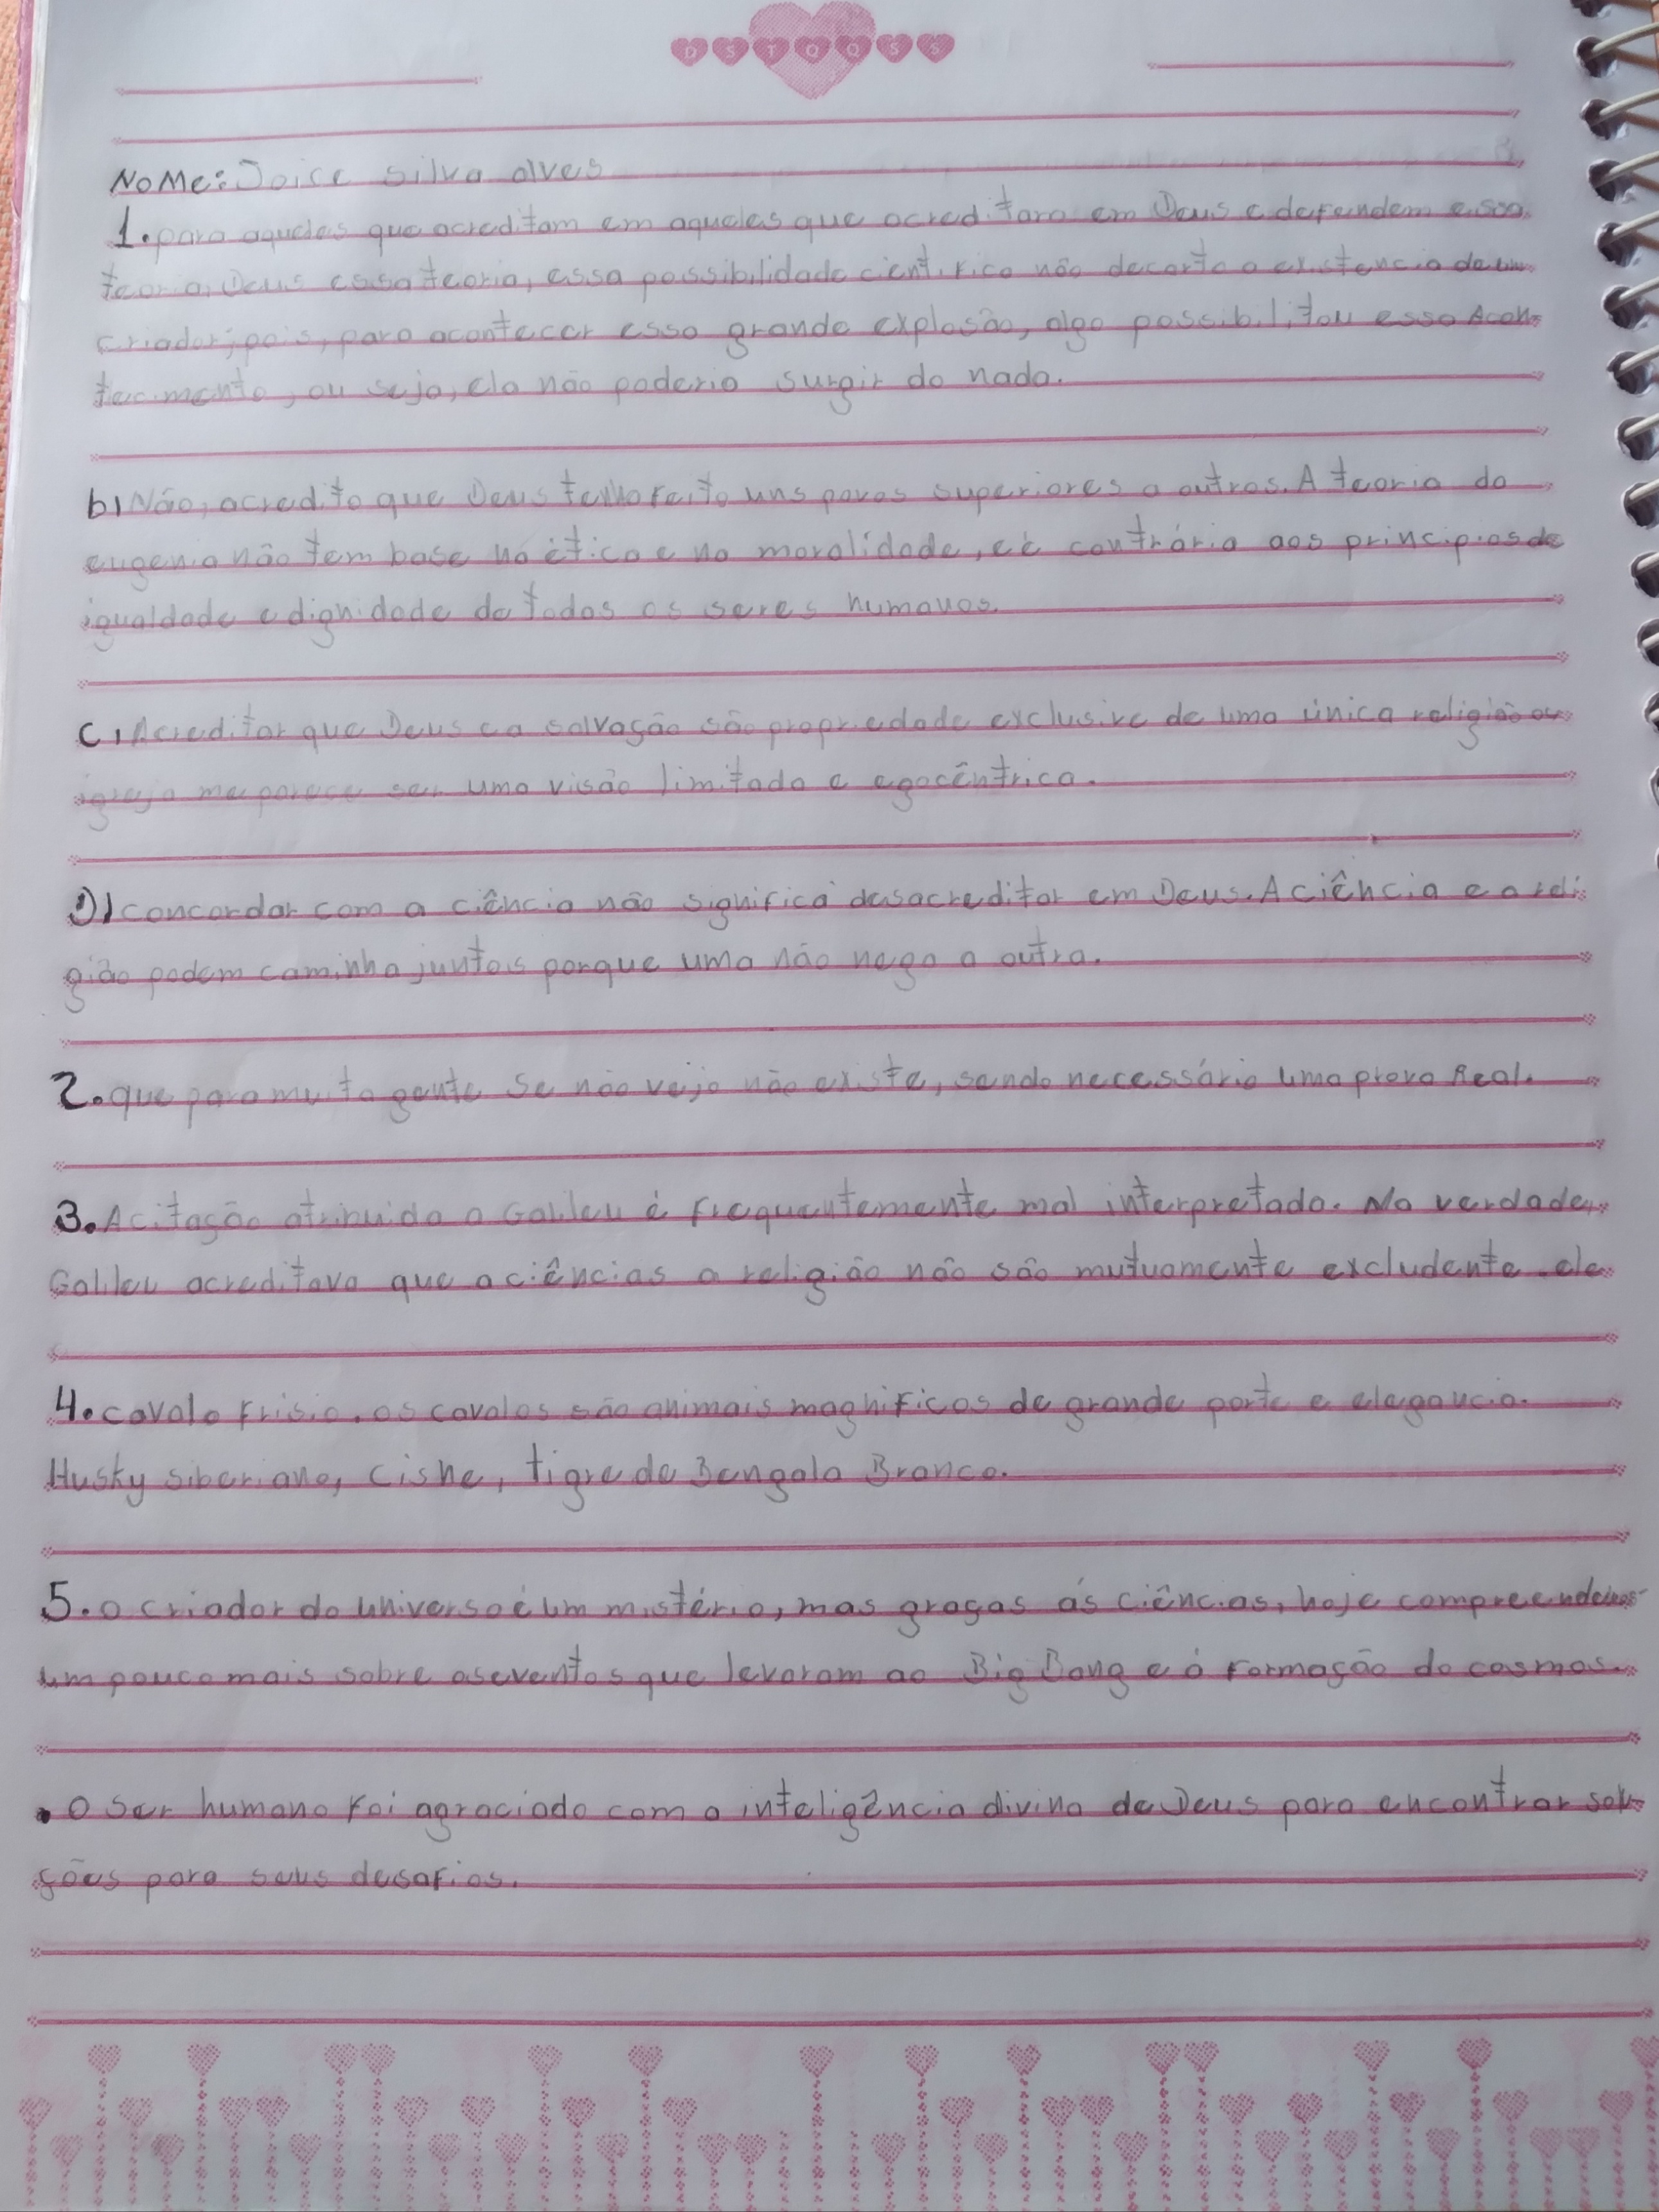 D S T Q Q S S
NoMe: Joice silva alves
1. para aqueles que acreditam em aqueles que acreditam em Deus e defendem essa
teoria, Deus essa teoria, essa possibilidade cientifica não decarta a existencia de um
criador; pois, para acontecer essa grande explosão, algo possibilitou esso Acon-
tecimento, ou seja, ela não poderia surgir do nada.
b) Não, acredito que Deus tenha feito uns povos superiores a outros. A teoria da
eugenia não tem base na ética e na moralidade, e é contrária aos principios de
igualdade e dignidade de todos os seres humanos.
C, Acreditar que Deus e a salvação são propriedade exclusive de uma única religião ou
igreja me parece ser uma visão limitada e egocêntrica.
D) concordar com a ciência não significa desacreditar em Deus. A ciência e a reli-
gião podem caminha juntos porque uma não nega a outra.
2. que para muita gente se não vejo não existe, sendo necessário uma prova Real.
3. A citação atribuida a Galileu é frequentemente mal interpretado. Na verdade,
Galileu acreditava que a ciências a religião não são mutuamente excludente. ele
4. cavalo Frisio. os cavalos são animais magnificos de grande porte e elegancia.
Husky siberiano, cisne, tigre de Bengala Branco.
5. o criador do universo é um mistério, mas graças ás ciências, hoje compreendemos
um pouco mais sobre os eventos que levaram ao Big Bang e á formação do cosmos.
• O ser humano foi agraciado com a inteligência divina de Deus para encontrar solu-
ções para seus desafios.